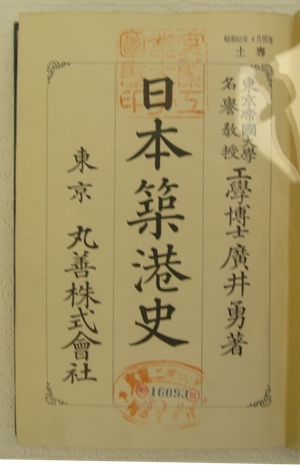 專
土
東京帝國大學
名譽教授
工學博士
廣井勇著
日本築港史
東京
丸善株式會社
16093